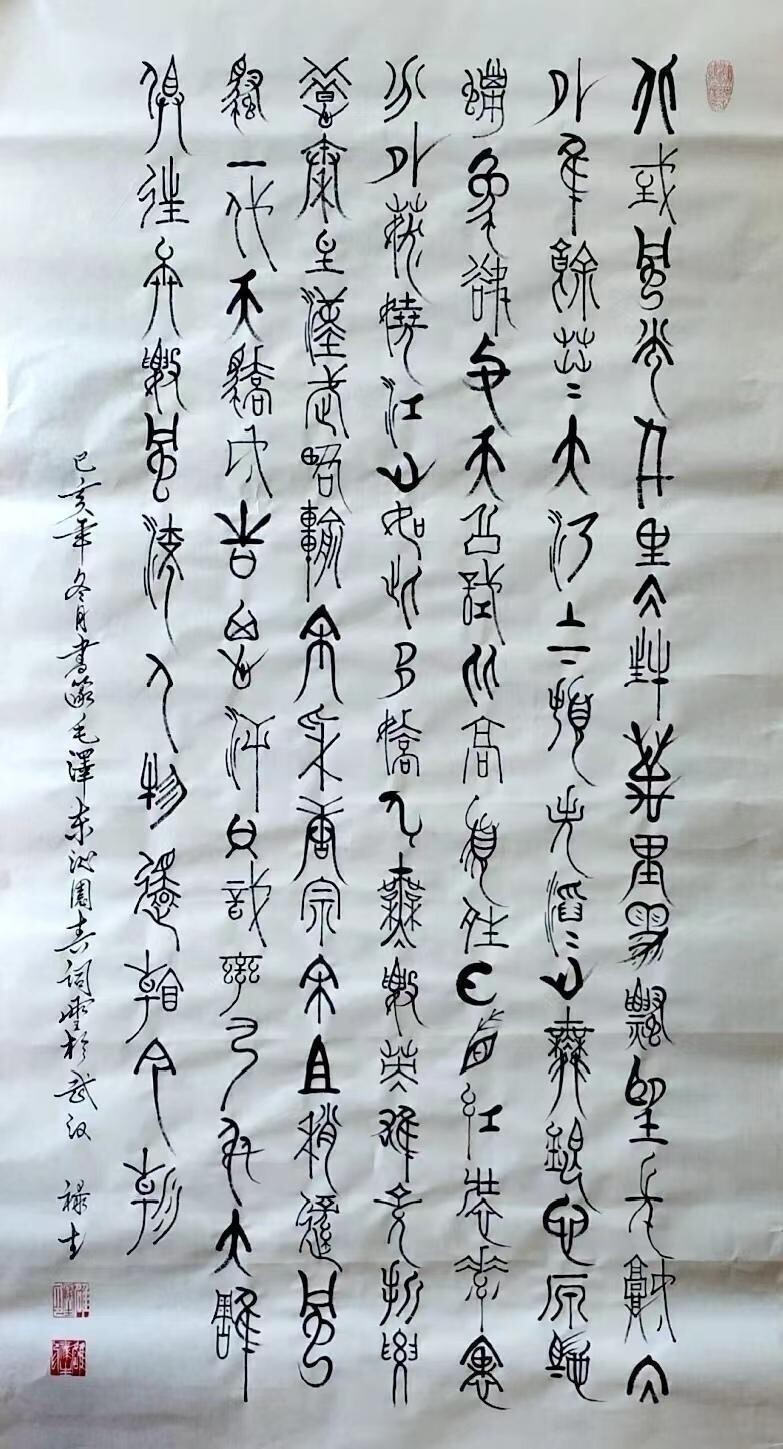 北國風光千里冰封萬里雪飄望長城内
外隹餘莽〻大河上下頓失滔〻山舞銀蛇原馳
蠟象欲与天公試比高須晴日看紅裝素裹
分外妖嬈江山如此多嬌引無數英雄競折腰
惜秦皇漢武略輸文采唐宗宋祖稍遜風
騷一代天驕成吉思汗只識彎弓射大雕
俱往矣數風流人物還看今朝
己亥年冬月書毛澤東沁園春詞雪於武汉